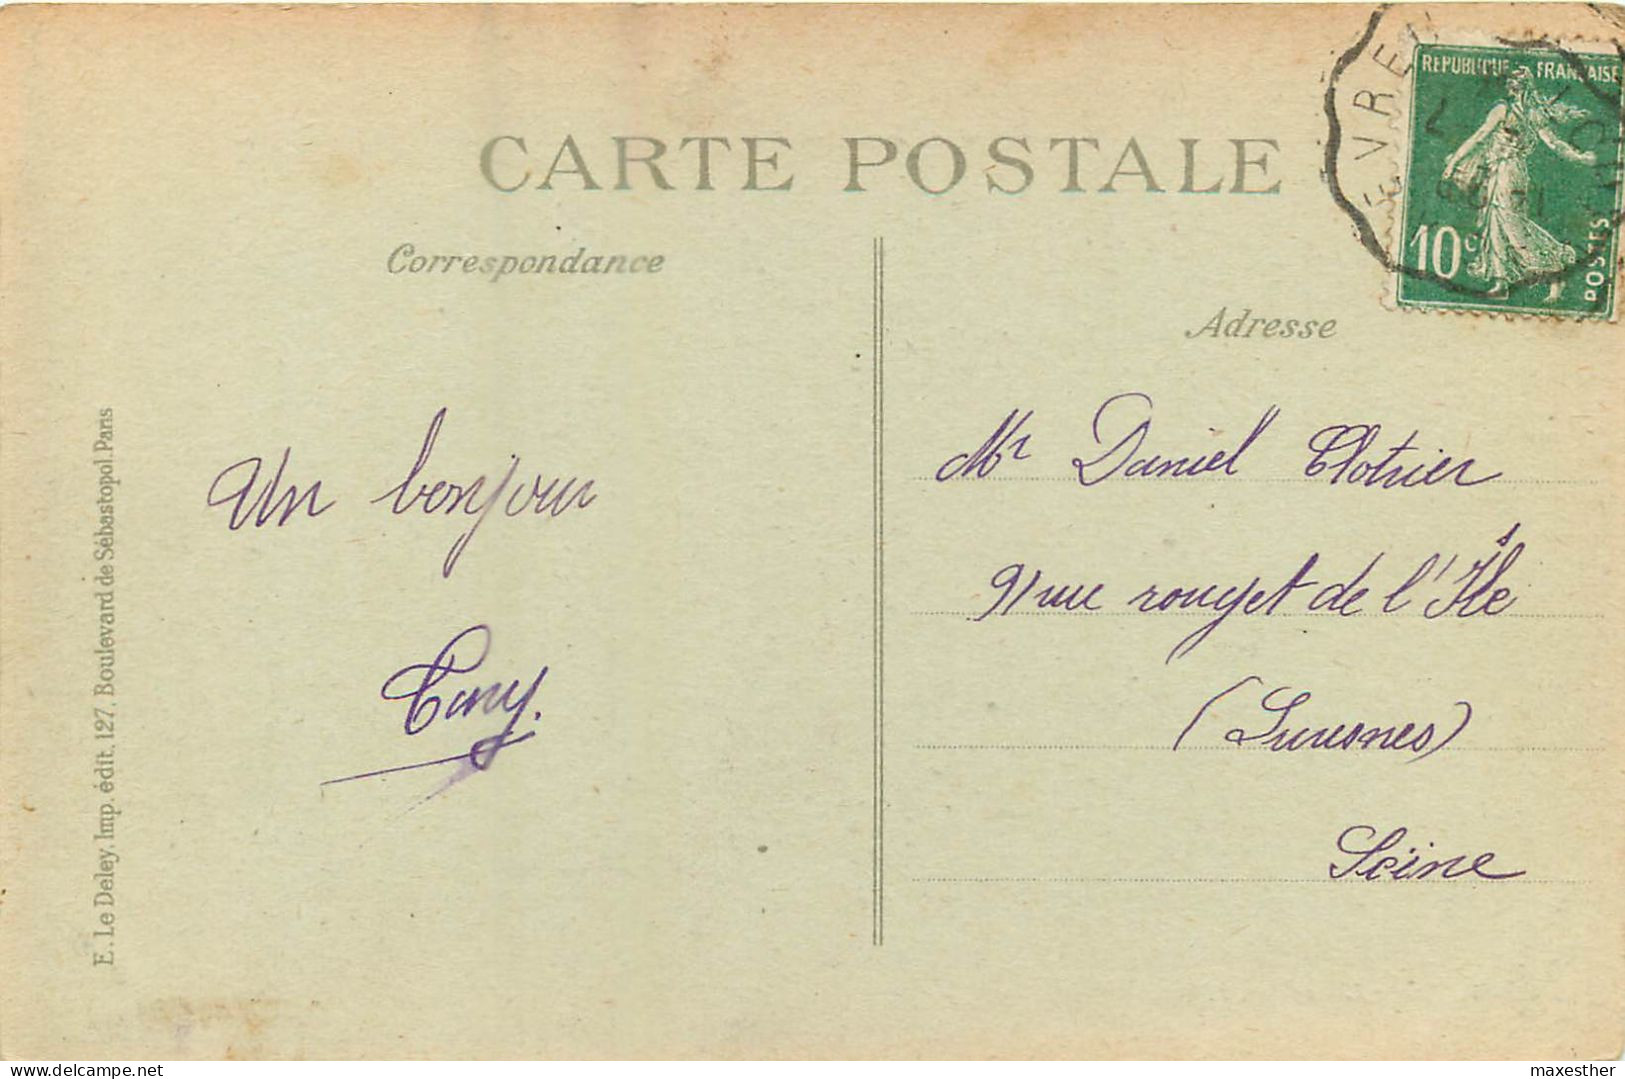 CARTE POSTALE
Correspondance
Adresse
RÉPUBLIQUE FRANÇAISE
10c
POSTES
EVREU
Un bonjour
Tony.
Mr Daniel Clotrier
9 rue rouget de l'Île
(Suresnes)
Seine
E. Le Deley, Imp. édit. 127, Boulevard de Sébastopol. Paris
delcampe.net
maxesther